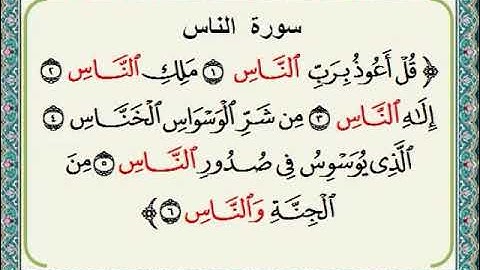 سورة الناس
﴿ قُلْ أَعُوذُ بِرَبِّ ٱلنَّاسِ ۝١ مَلِكِ ٱلنَّاسِ ۝٢
إِلَٰهِ ٱلنَّاسِ ۝٣ مِن شَرِّ ٱلْوَسْوَاسِ ٱلْخَنَّاسِ ۝٤
ٱلَّذِى يُوَسْوِسُ فِى صُدُورِ ٱلنَّاسِ ۝٥ مِنَ
ٱلْجِنَّةِ وَٱلنَّاسِ ۝٦ ﴾